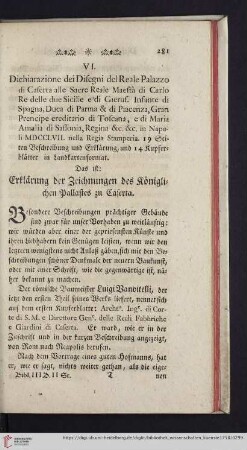 281
VI.
Dichiarazione dei Disegni del Reale Palazzo
di Caserta alle Sacre Reale Maestà di Carlo
Re delle due Sicilie e di Gierus. Infante di
Spagna, Duca di Parma & di Piacenza, Gran
Prencipe ereditario di Toscana, e di Maria
Amalia di Sassonia, Regina &c. &c. in Napo-
li MDCCLVII. nella Regia Stamperia. 19 Sei-
ten Beschreibung und Erklärung, und 14 Kupfer-
blätter in Landkartenformat.
Das ist:
Erklärung der Zeichnungen des Königli-
chen Pallastes zu Caserta.
Besondere Beschreibungen prächtiger Gebäude
sind zwar für unser Vorhaben zu weitläuftig:
wir würden aber einer der gepriesensten Künste und
ihren Liebhabern kein Genügen leisten, wenn wir den
letztern wenigstens nicht Anlaß gäben, sich mit den Be-
schreibungen schöner Denkmale der neuern Baukunst,
oder mit einer Schrift, wie die gegenwärtige ist, nä-
her bekannt zu machen.
Der römische Baumeister Luigi Vanvitelli, der
jetzt den ersten Theil seines Werks liefert, nennet sich
auf dem ersten Kupferblatt: Archit. Ing. di Cor-
te di S. M. e Direttore Gen. delle Reali Fabbriche
e Giardini di Caserta. Er ward, wie er in der
Zuschrift und in der kurzen Beschreibung anzeigt,
von Rom nach Neapolis berufen.
Nach dem Vortrage eines guten Hofmanns, hat
er, wie er sagt, nichts weiter gethan, als die eige-
Bibl. III B. II St.
T
nen
http://digi.ub.uni-heidelberg.de/diglit/